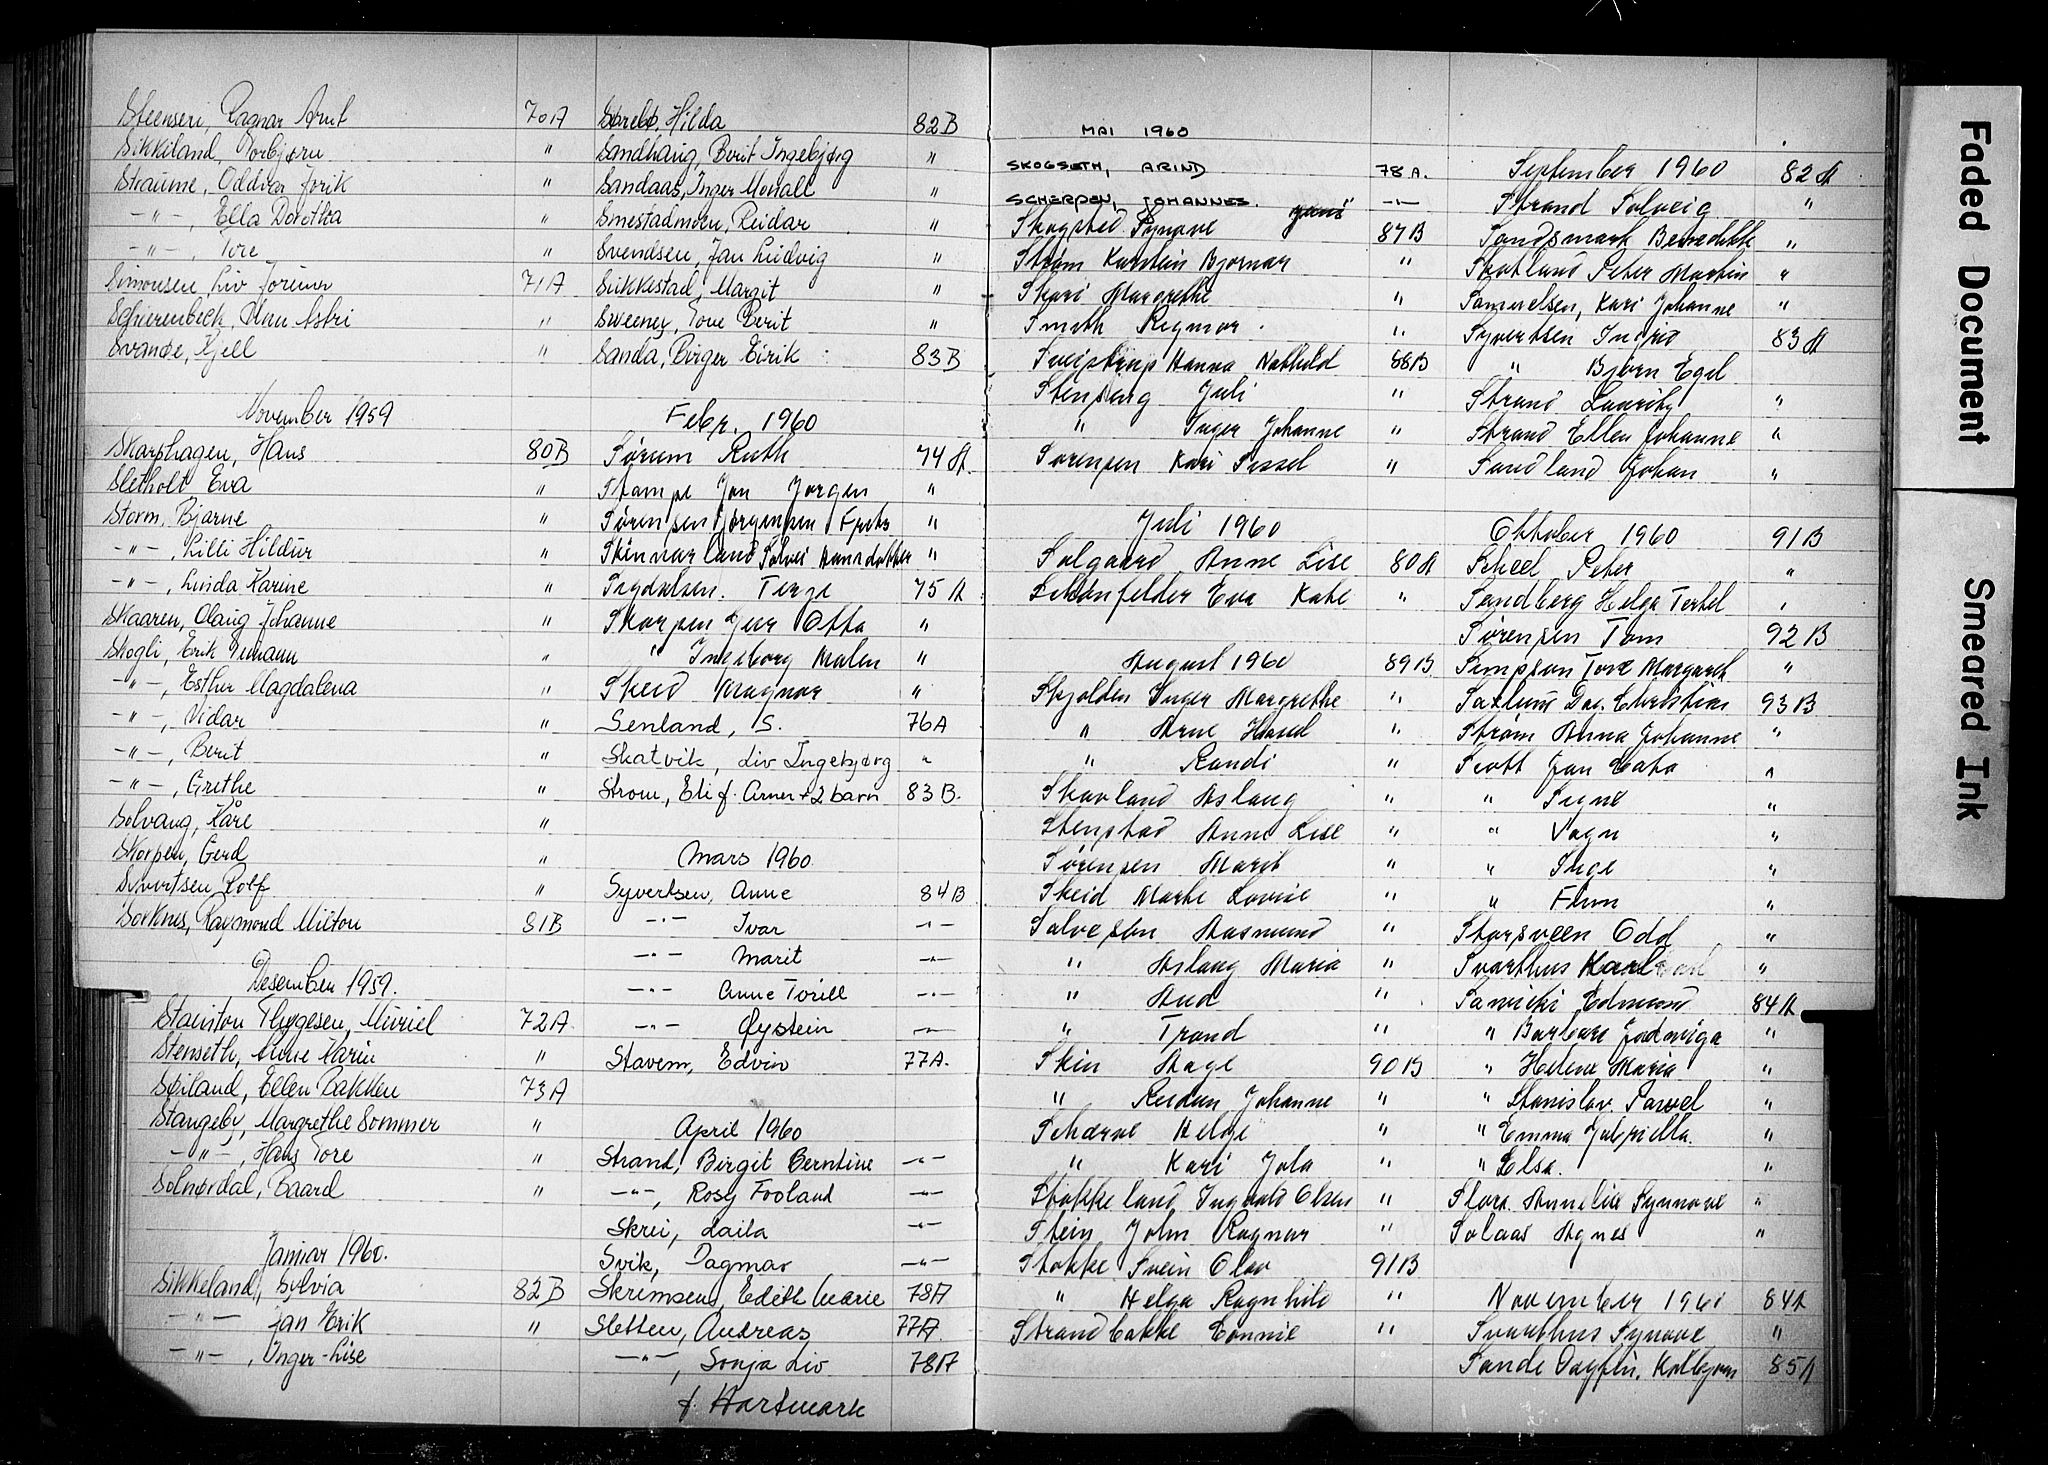 Steensen, Ragnar Arnt 70A
Sikkiland, Torbjørn "
Straume, Oddvar Jørik "
-"-, Ella Dorothea "
-"-, Tore "
Simonsen, Liv Jorunn 71A
Schierenbeck, Astri "
Svanøe, Kjell "
November 1959
Skarphagen, Hans 80B
Sletholt Eva "
Storm, Bjarne "
-"-, Lilli Hildur "
-"-, Linda Karine "
Skaaren, Olaug Johanne "
Skogli, Erik "
-"-, Esther Magdalena "
-"-, Vidar "
-"-, Berit "
-"-, Grethe "
Solvang, Kåre "
Skorpen, Gerd "
Sivertsen Rolf "
Sorknes, Raymond Milton 81B
Desember 1959.
Stainton Thygesen, Muriel 72A
Stenseth, Anne Karin "
Søiland, Ellen Bakken 73A
Stangeby, Margrethe Sommer "
-"-, Hans Tore "
Solnørdal, Baard "
Januar 1960.
Sikkeland, Sylvia 82B
-"- Jan Erik "
-"-, Inger-Lise
Hilda 82B
Sandhaug, Berit Ingebjørg "
Sandaas, Inger "
Smestadmoen, Reidar "
Svendsen, Jan Ludvig "
Sikkestad, Margit "
Sweeney, Tove Berit "
Sanda, Birger Eirik 83B
Febr. 1960
Sørum Ruth 74A
Stampe Jon Jorgen "
Sørensen Jørgensen Fritz "
Skinnarland Solvei Hansdatter "
Sigdalsen. Terje 75A
Skorpen Geir Otto "
" Ingeborg Malen "
Skeid Magnar "
Senland, S. 76A
Skatvik, Liv Ingebjørg "
Strom, Eli f. Arner + 2 barn 83B.
Mars 1960.
Syvertsen, Anne 84B
-"- Ivar -"-
-"- Marit -"-
-"- Anne Torill -"-
-"- Øystein -"-
Stavem, Edvin 77A.
April 1960
Strand, Birgit Berntine -"-
-"-, Rosy Fooland -"-
Skrei, Laila -"-
Svik, Dagmar -"-
Skrimsen, Edith Marie 78A
Sletten, Andreas 77A.
-"-, Sonja Liv 78A
f. Hartmark
MAI 1960
SKOGSETH, ARIND 78A.
SCHERPEN, JOHANNES. -"-
Skogsted Synøve 87B
Strøm Karstein Bjornar "
Skari Margrethe "
Smith Rigmor. "
Sveistrup Hanna Mathild 88B
Stensing Juli "
" Inger Johanne "
Sørensen Kari Sissel "
Juli 1960
Solgaard Anne Lise 80A
Schönfelder Eva Kate "
August 1960 89B
Skjolden Inger Margrethe "
" Arne Harald "
" Randi "
Skavland Aslaug "
Stenstad Anne Lise "
Sørensen Marit "
Skeid Marte Lovise "
Salvesen Aasmund "
" Aslaug Maria "
" Aud "
" Trond "
Skin Aage 90B
" Reidun Johanne "
Schærve Helge "
" Kari Jola "
Stokkeland Ingvald Olsen "
Stein John Ragnar "
Stokke Svein Olav 91B
" Helga Ragnhild "
Strandbakke Connie "
September 1960 82A
Strand Solveig "
Sandsmark Benedikte "
Skotland Peter Martin "
Samuelsen, Kari Johanne "
Syvertsen Ingrid 83A
" Bjørn Egil
Strand Lauritz "
Strand Ellen Johanne "
Sandland Johan "
Oktober 1960 91B
Scheel Peter "
Sandberg Helge Terkel "
Sørensen Tom 92B
Simpson Tove Margareth "
Saxlund Dag. Christian 93B
Strøm Anna Johanne "
Scott Jan Cato "
" Signe "
" Vagn "
" Inge "
" Finn "
Storsveen Odd "
Svarthus Karl "
Sawicki Edmund 84A
" Barbara Jadwiga "
" Helene Maria "
" Stanislav. Pawel "
" Emma Gabriella. "
" Elsa. "
Annelise Synnøve "
Solaas Agnes "
November 1960 84A
Svarthus Synøve "
Sande Dagfin. 85A
Faded Document
Smeared Ink